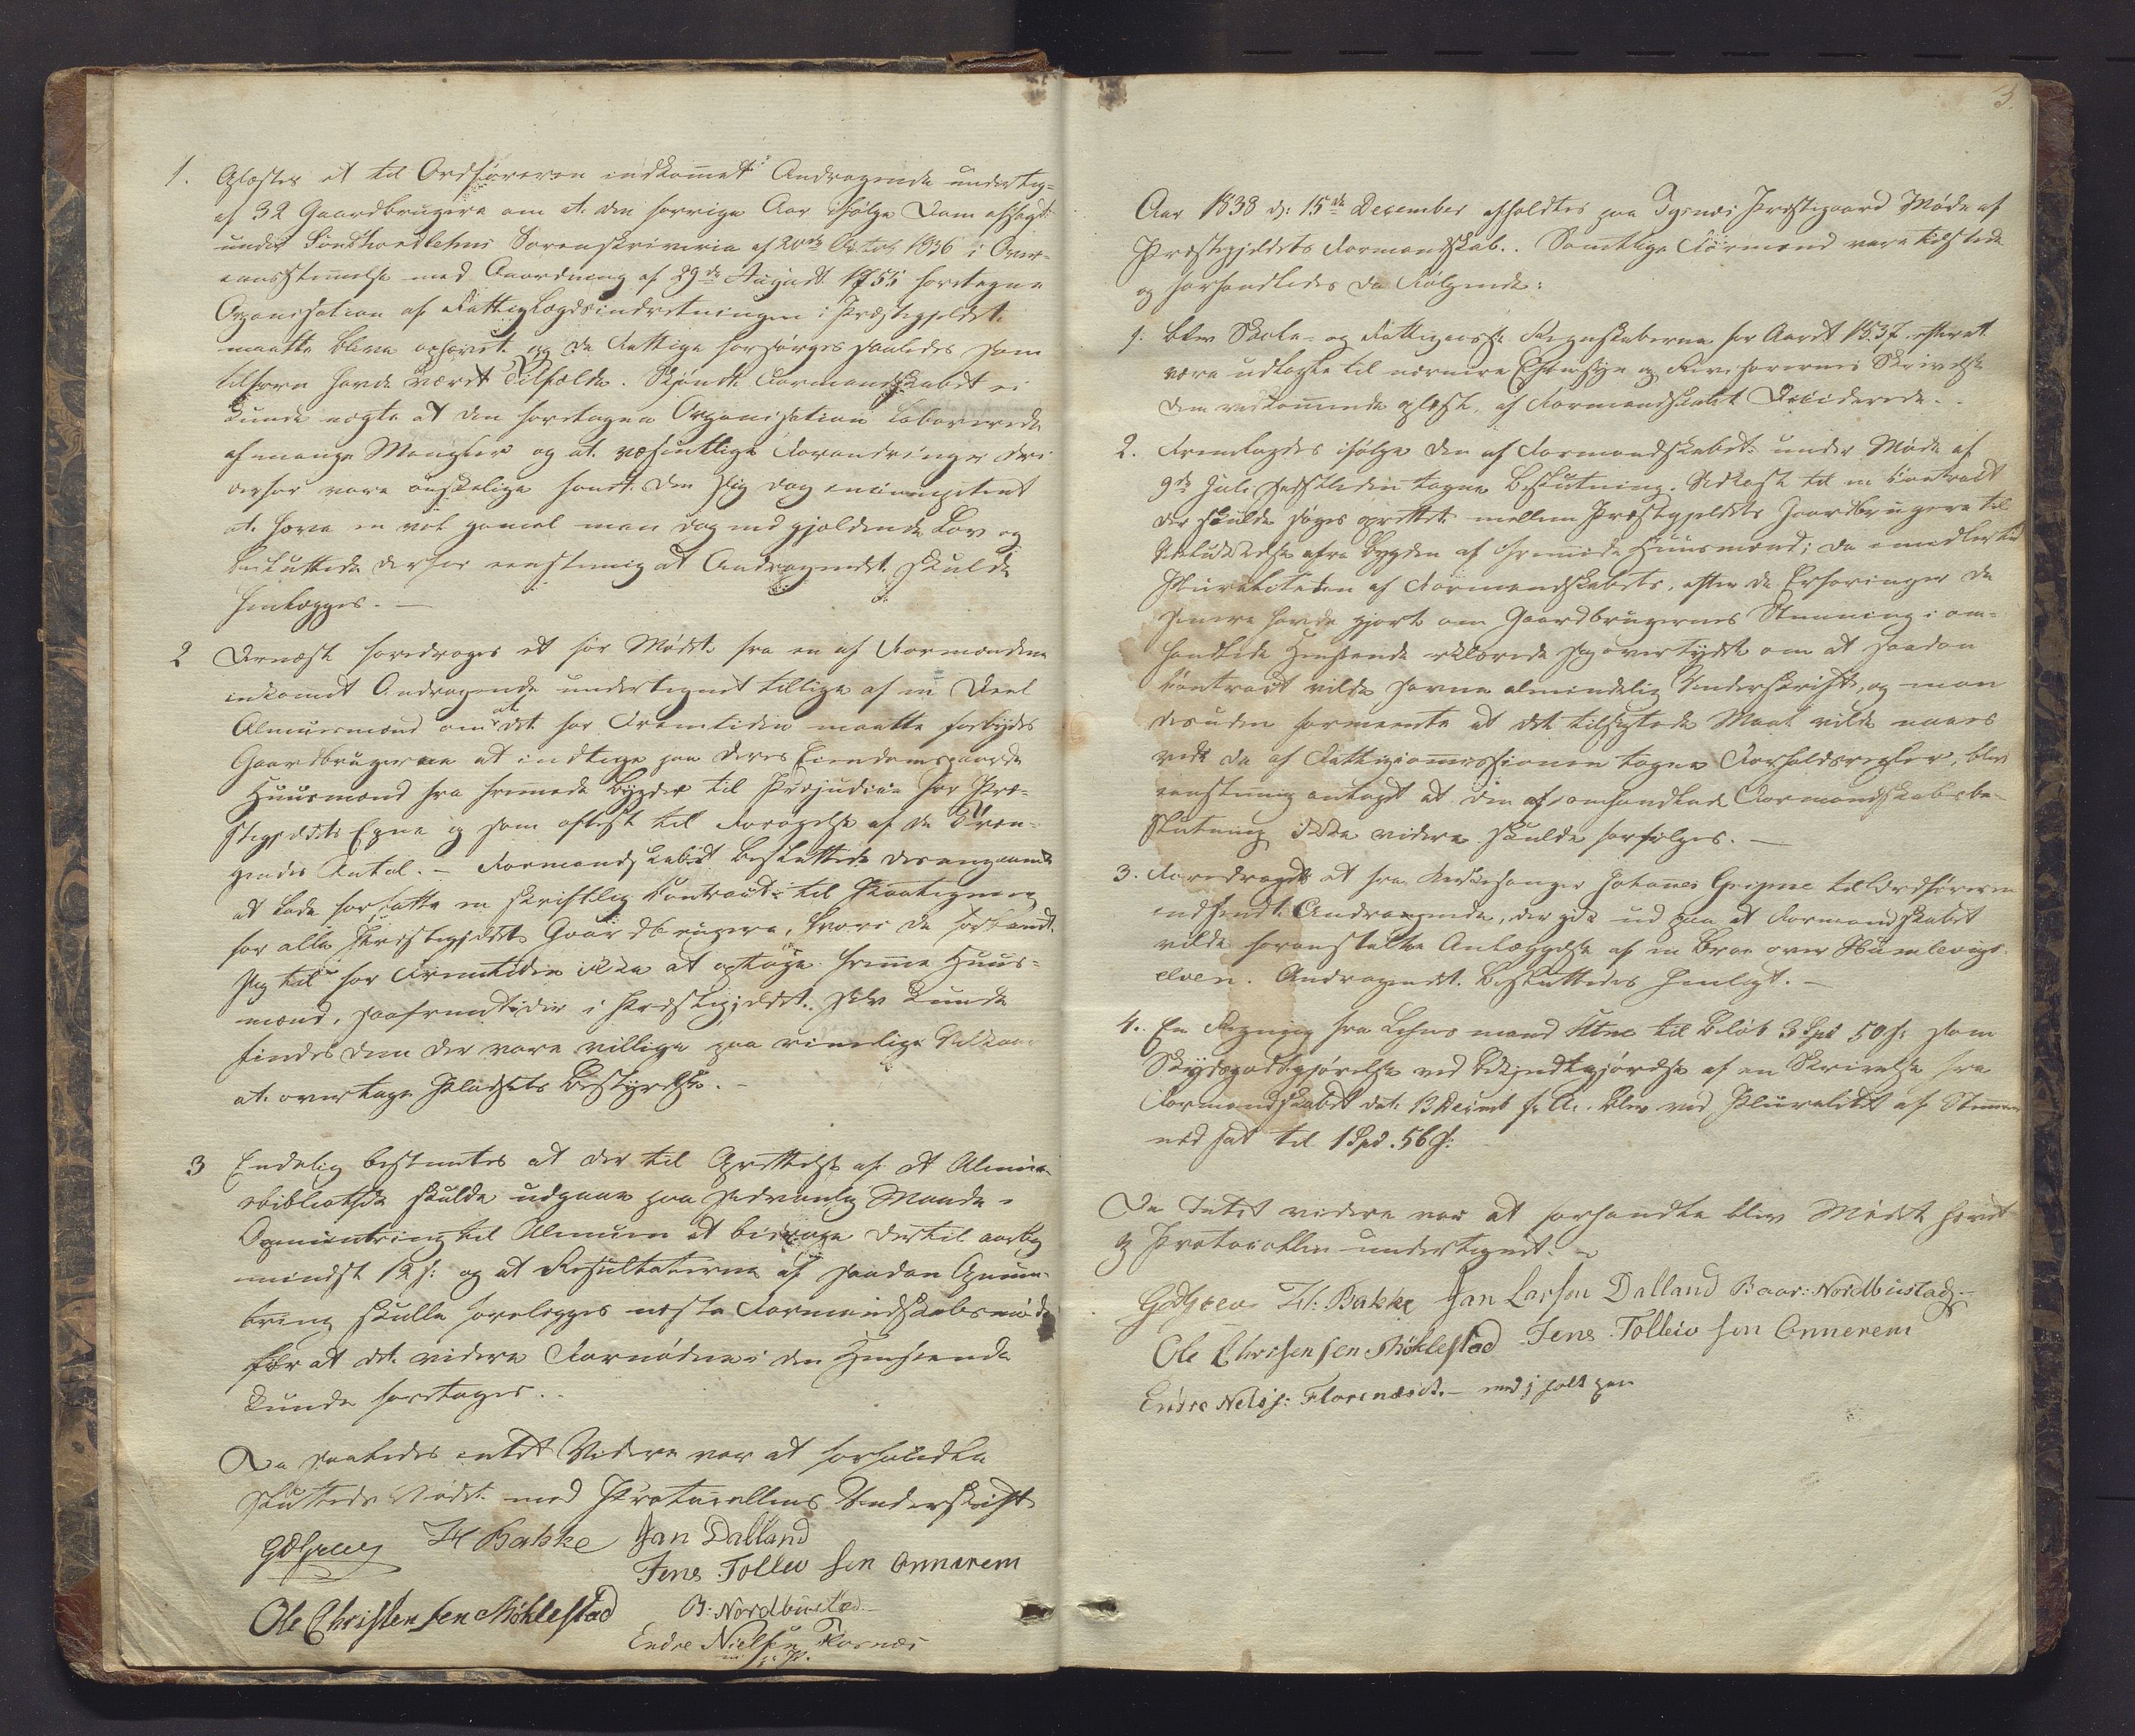 1. Oplæstes et til Ordføreren indkommet Andragende underteg-
af 32 Gaardbrugere om at den forrige Aar ifølge Dom afsagt
under Søndhordlehns Sorenskriverie af 20de Octob 1836 i Over-
eensstemmelse med Anordning af 29de August 1755 foretagne
Organisation af Fattiglægdsindretningen i Præstegjeldet
maatte blive ophævet og de Fattige forsørges saaledes som
tilforn havde været Tilfælde. Skjøndt Formandskabet ei
kunde negte at den foretagne Organisation laborerede
af mange Mangler og at væsentlige Forandringer deri
derfor vare ønskelige fandt den sig dog incompetent
at hæve en vel gammel men dog end gjældende Lov og
besluttede derfor eenstemmig at Andragendet skulde
henlægges. —
2 Dernæst foredroges et før Mødet fra en af Formændene
indkommet Andragende undertegnet tillige af en Deel
Almuesmænd om at det for Fremtiden maatte forbydes
Gaardbrugerne at indtage paa deres Eiendomsgaarde
Huusmænd fra fremmede Bygder til Præjudice for Præ-
stegjeldets Egne og som oftest til Forøgelse af de Træn-
gendes Antal. — Formandskabet besluttede desangaaende
at lade forfatte en skriftlig Contract til Paategning
for alle Præstegjeldets Gaardbrugere, hvori de forbandt
sig til for Fremtiden ikke at optage fremmede Huus-
mænd, saafremt der i Præstegjeldet selv kunde
findes dem der vare villige paa rimelige Vilkaar
at overtage Pladsets Bestyrelse. —
3 Endelig bestemtes at der til Oprettelse af et Almue-
bibliothek skulde udgaae paa sædvanlig Maade
Opmuntring til Almuen at bidrage dertil aarlig
mindst 12 s: og at Resultaterne af saadan Opmun-
tring skulle forelægges næste Formandskabsmøde
for at det videre Fornødne i den Henseende
kunde foretages. —
Da saaledes intet Videre var at forhandle
sluttedes Mødet med Protocollens Underskrift
H Bakke Jan Dalland
Jens Tollev sen Onnarem
Ole Christensen Møklestad B: Nordbustad
Endre Nielsen Flornæs
3.
Aar 1838 d: 15de December afholdtes paa Tysnæs Præstegaard Møde af
Præstegjeldets Formandskab. Samtlige Formænd vare tilstede
og forhandledes da Følgende:
1. Blev Skole- og Fattigcasse Regnskaberne for Aaret 1837 efterat
være udlagte til nærmere Eftersyn og Revisorernes Skrivelse
dem vedkommende oplæst, af Formandskabet Deciderede. —
2. Fremlagdes ifølge den af Formandskabet under Møde af
9de Juli sidstleden tagne Beslutning Udkast til en Contract
der skulde søges oprettet mellem Præstegjeldets Gaardbrugere til
Udelukkelse fra Bygden af fremmede Huusmænd; da imidlertid
Pluraliteten af Formandskabet, efter de Erfaringer de
senere havde gjort om Gaardbrugernes Stemning i om-
handlede Henseende erklærede sig overtydet om at saadan
Contract vilde savne almindelig Underskrift, og man
desuden formeente at det tilsigtede Maal vilde naaes
ved de af Fattigcommissionen tagne Forholdsregler, blev
eenstemmig antaget at den omhandlede Formandskabsbe-
slutning ikke videre skulde forfølges. —
3. Foredroges et fra Kirkesanger Johannes Gripne til Ordføreren
indsendt Andragende, der gik ud paa at Formandskabet
vilde foranstalte Anlæggelse af en Broe over
elven. Andragendet besluttedes henlagt. —
4. En Regning fra Lehnsmand Utne til Beløb 3 Spd 50 s: som
Skydsgodtgjørelse ved Bekjendtgjørelse af en Skrivelse fra
Formandskabet dat: 13 Decemb f. A. blev ved Pluralitet af Stemmer
nedsat til 1 Spd. 56 s:
Da Intet videre var at forhandle blev Mødet hævet
og Protocollen undertegnet. —
H: Bakke Jan Larsen Dalland Baar: Nordbustad
Ole Christensen Møklestad Jens Tolleiv sen Onnerem
Endre Nels: Flornæset. — med holt pen